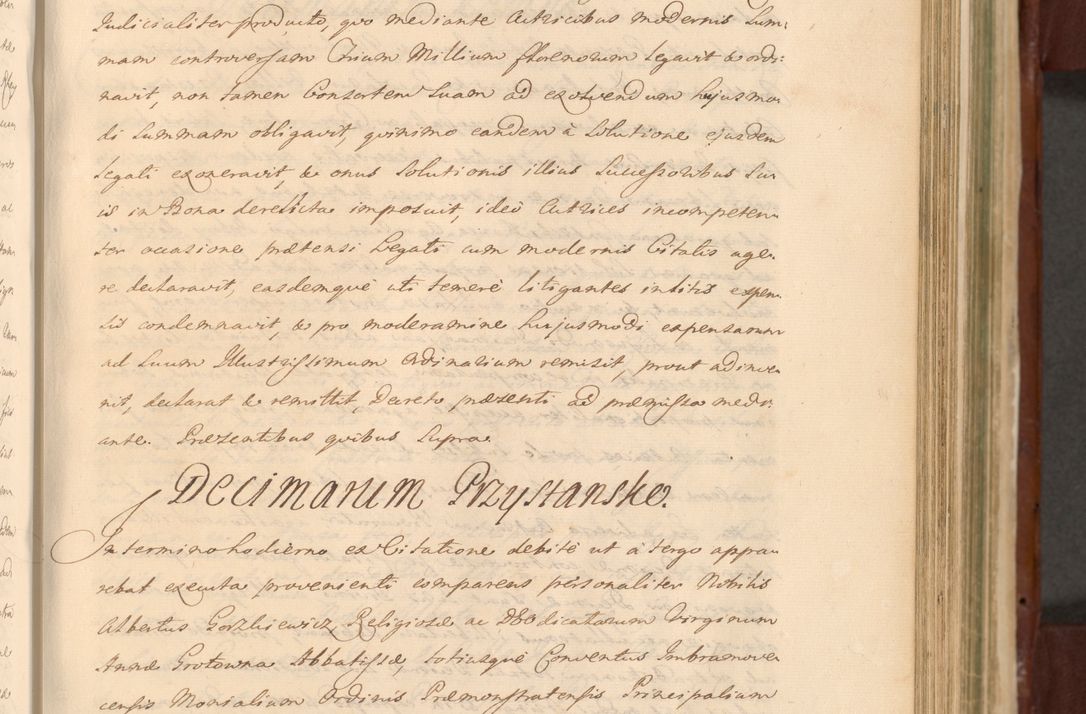 Judicialiter producto, quo mediante Actricibus modernis Sum:
mam controversam Trium Millium florenorum legavit & ordi:
navit, non tamen Consortem Suam ad exolvendum hujusmo:
di Summam obligavit, quinimo eandem à Solutione ejusdem
Legati exoneravit, & onus Solutionis illius Successoribus Su:
is in Bona derelicta imposuit, ideo Actrices incompeten:
ter occasione prætensi Legati cum modernis Citatis age:
re declaravit, easdemque uti temere litigantes in litis expen:
sis condemnavit, & pro moderamine hujusmodi expensarum
ad Suum Illustrissimum Ordinarium remisit, prout adinve:
nit, declarat & remittit, Decreto præsenti ad præmissa medi:
ante. Præsentibus quibus Supra.
Decimarum Przystansko.
In termino hodierno ex Citatione debite ut à tergo appa:
rebat executa provenienti comparens personaliter Nobilis
Albertus Gorzkiewicz Religiosæ ac DEO dicatarum Virginum
Annæ Grotowna Abbatissæ, totiusque Conventus Imbramovi:
censis Monialium Ordinis Præmonstratensis Principalium